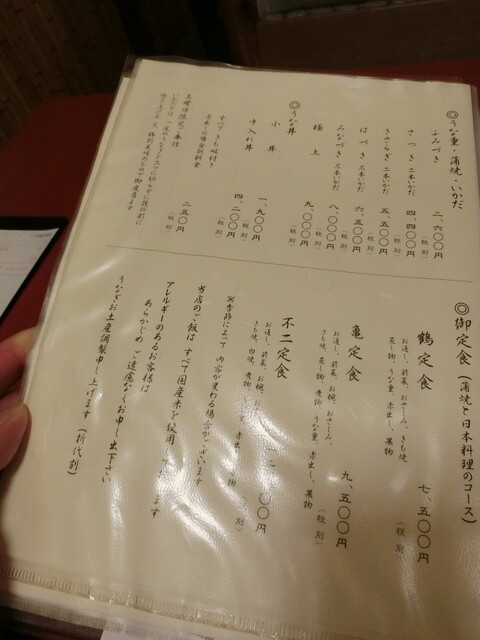 ◎うな重・蒲焼・いかだ
ふみづき 二、六〇〇円
(税別)
さつき 二本いかだ 四、四〇〇円
(税別)
きさらぎ 二本いかだ 五、五〇〇円
(税別)
はづき 三本いかだ 六、五〇〇円
(税別)
みなづき 三本いかだ 八、〇〇〇円
(税別)
極上 九、〇〇〇円
(税別)
◎うな丼
小丼 一、九〇〇円
(税別)
中入れ丼 四、二〇〇円
(税別)
すべてきも吸付き
二五〇円
(税別)
土曜日限定二番位
◎御定食(蒲焼と日本料理のコース)
鶴定食 七、五〇〇円
(税別)
お通し、前菜、おさしみ、きも焼
蒸し物、うな重、赤出し、果物
亀定食 九、五〇〇円
(税別)
お通し、前菜、お椀、おさしみ、
きも焼、蒸し物、煮物、うな重、赤出し、果物
不二定食 〇〇円
(税別)
お通し、前菜、お椀、
きも焼、白焼、煮物、赤出し、果物
※季節によって内容が変わる場合がございます
当店のご飯はすべて国産米を使用
アレルギーのあるお客様は
あらかじめご遠慮なくお申し出下さい
うなぎお土産調製申し上げます(折代別)